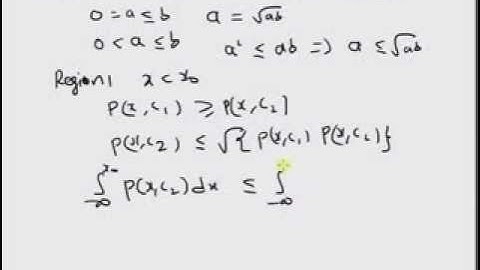 0 = a ≤ b   a = √ab
0 < a ≤ b   a² ≤ ab => a ≤ √ab
Region 1   x < x₀
P(x, c₁) ≥ P(x, c₂)
P(x, c₂) ≤ √{ P(x, c₁) P(x, c₂) }
∫ -∞ P(x, c₂) dx ≤ ∫ -∞